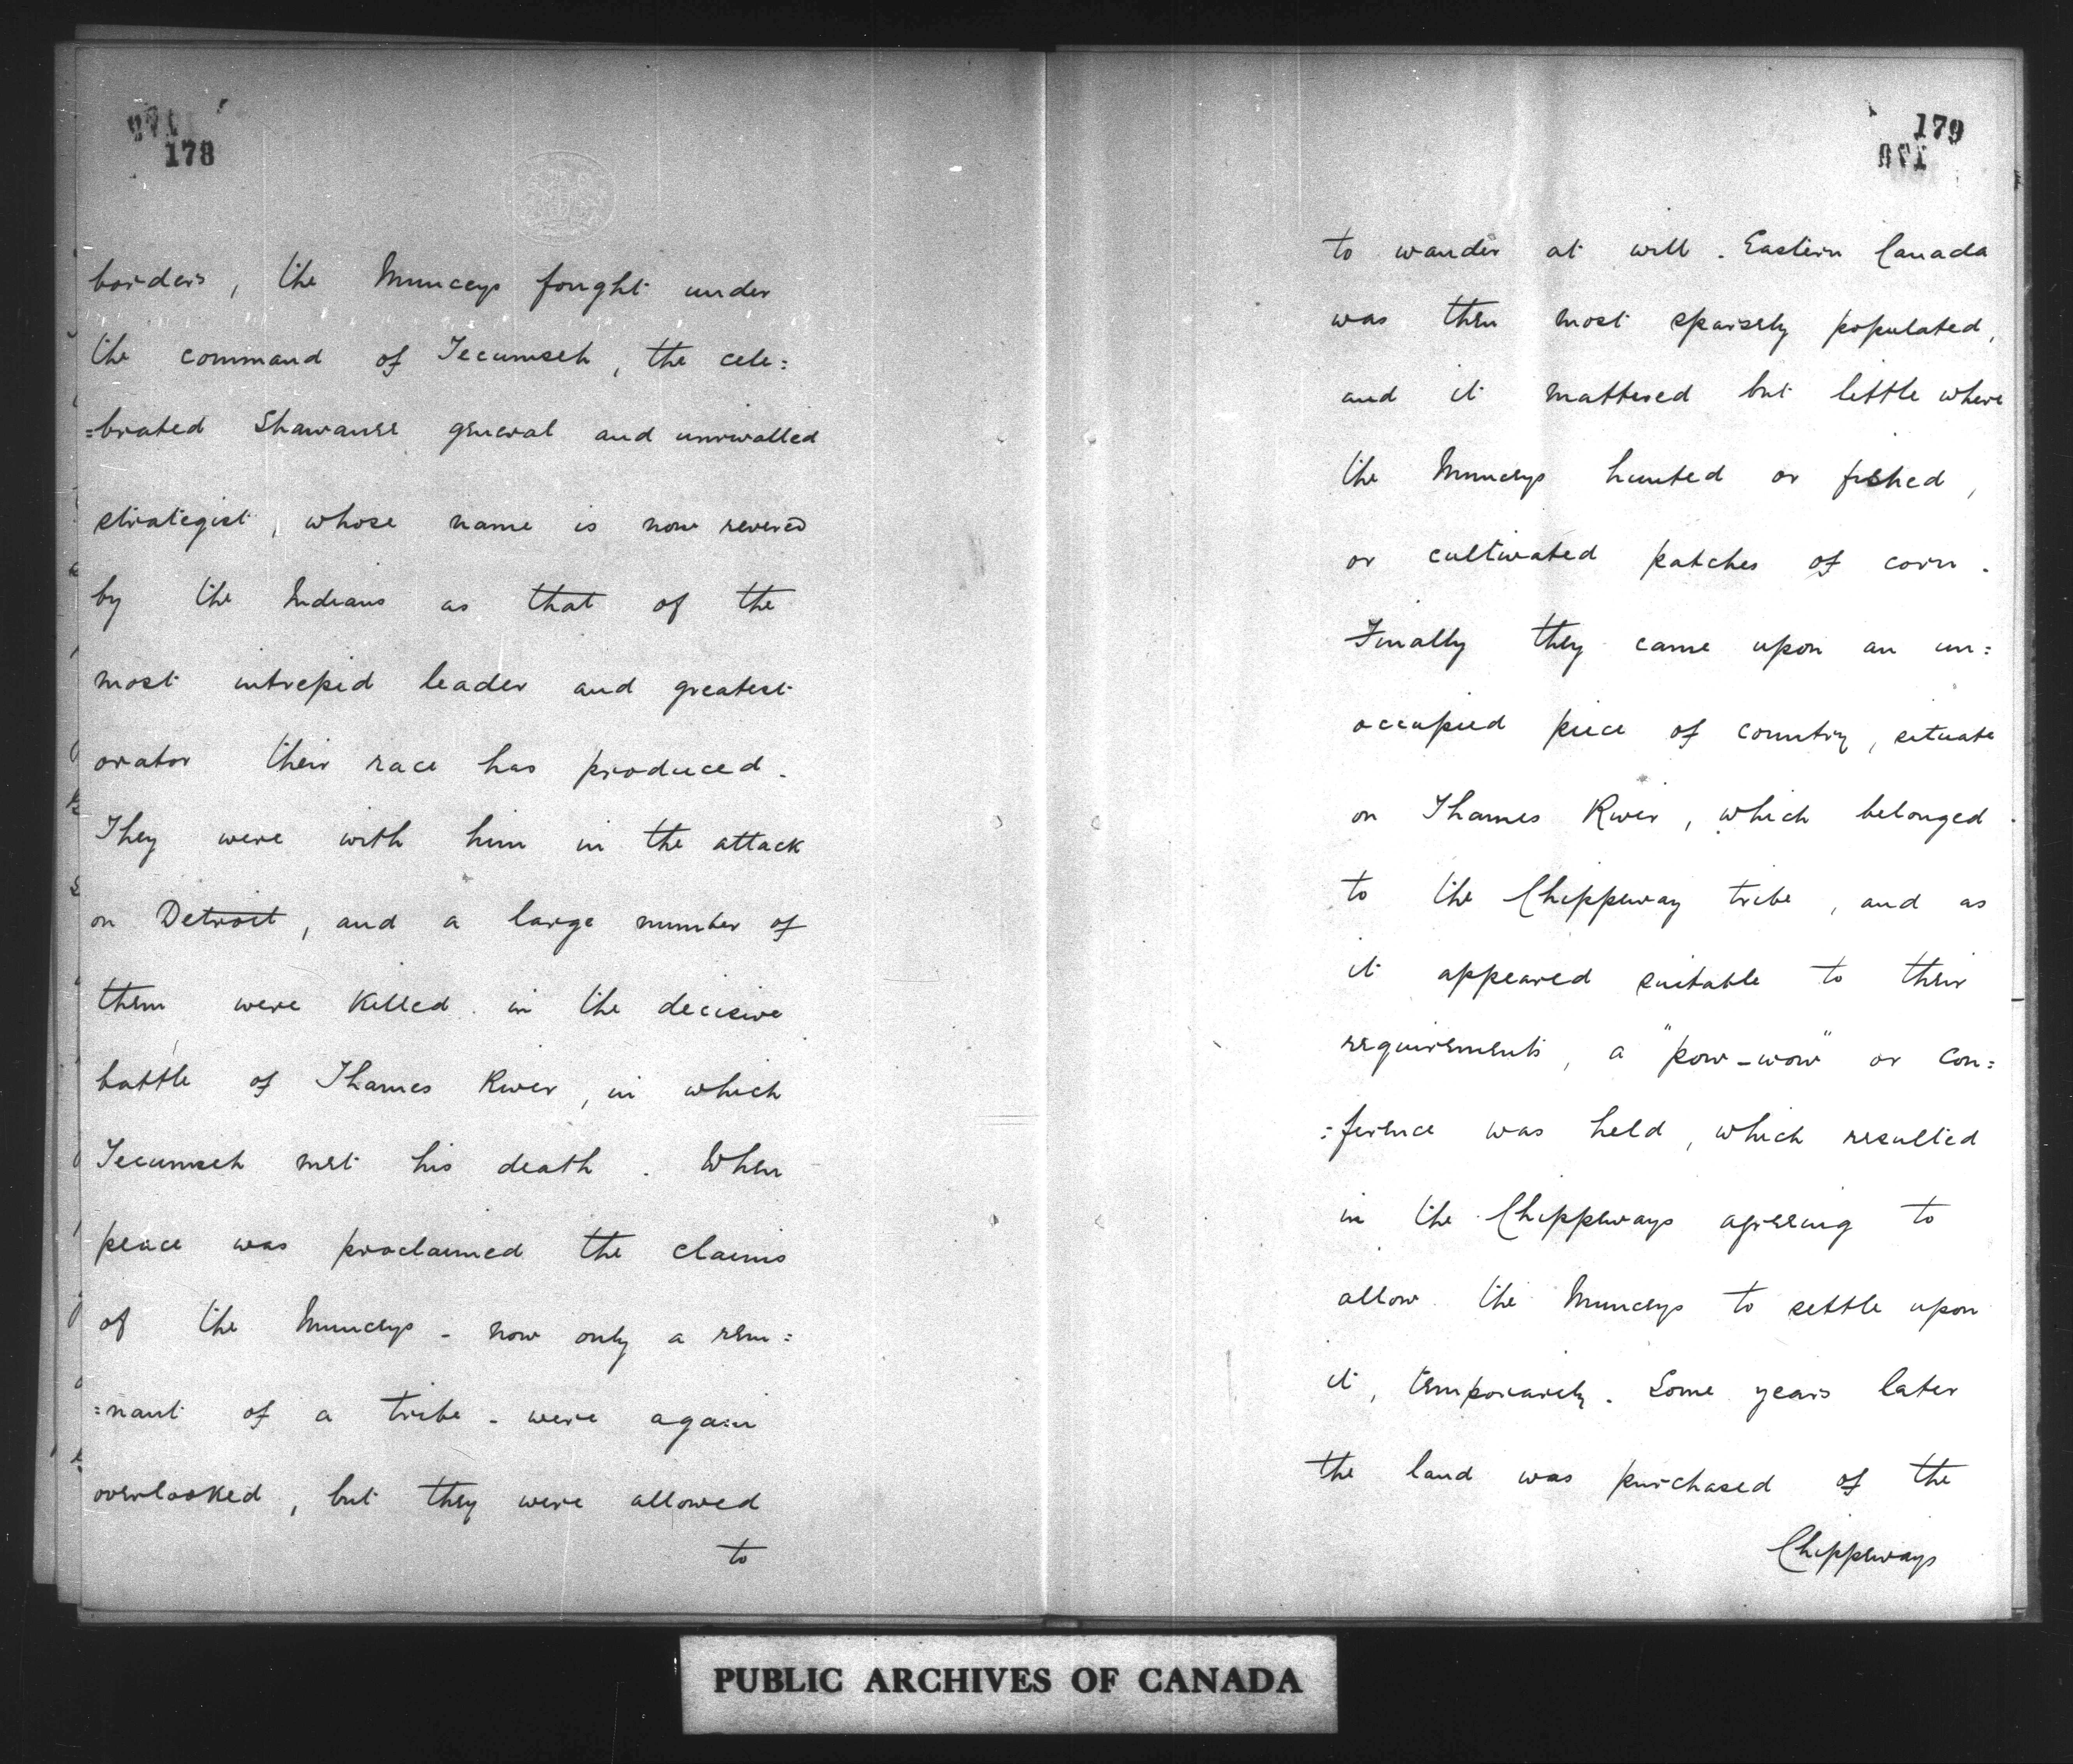 178
borders, the Munceys fought under
the command of Tecumseh, the cele=
=brated Shawanee general and unrivalled
strategist, whose name is now revered
by the Indians as that of the
most intrepid leader and greatest
orator their race has produced.
They were with him in the attack
on Detroit, and a large number of
them were killed in the decisive
battle of Thames River, in which
Tecumseh met his death. When
peace was proclaimed the claims
of the Munceys - now only a rem=
=nant of a tribe - were again
overlooked, but they were allowed
to
179
to wander at will. Eastern Canada
was then most sparsely populated,
and it mattered but little where
the Munceys hunted or fished,
or cultivated patches of corn.
Finally they came upon an un=
occupied piece of country, situate
on Thames River, which belonged
to the Chippeway tribe, and as
it appeared suitable to their
requirements, a "pow-wow" or con=
=ference was held, which resulted
in the Chippeways agreeing to
allow the Munceys to settle upon
it, temporarily. Some years later
the land was purchased of the
Chippeways
PUBLIC ARCHIVES OF CANADA